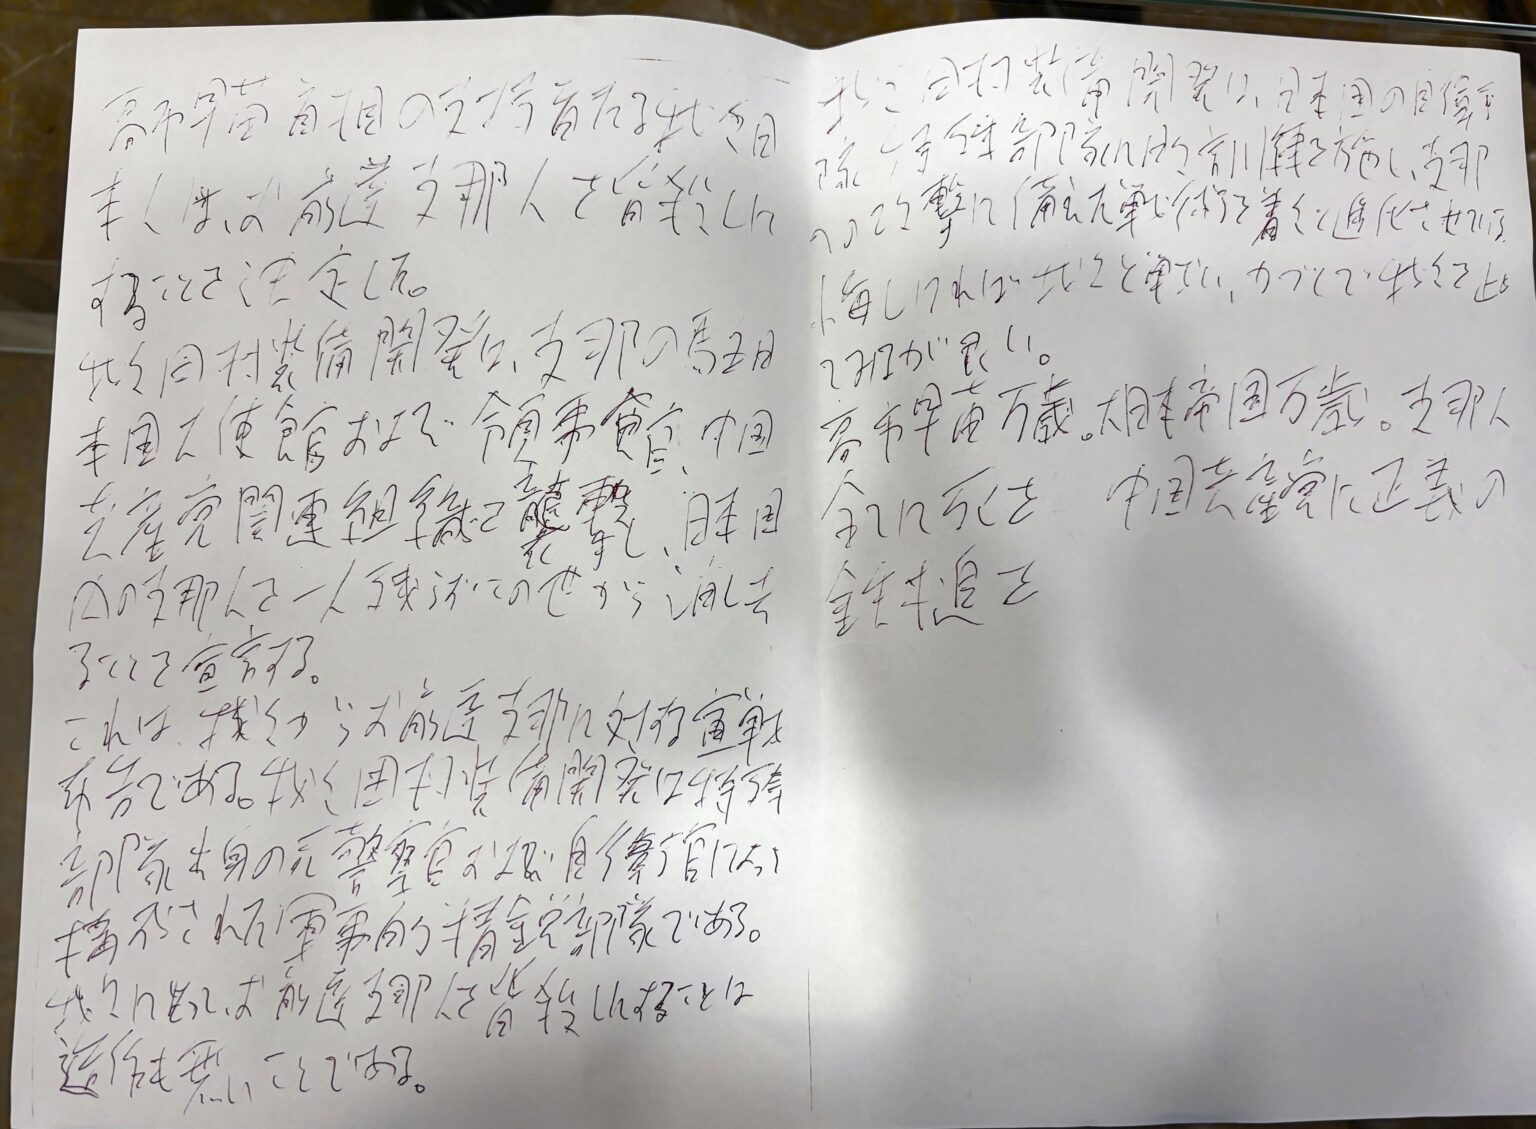 高市早苗首相の支持者たる我々日
本人は、お前達支那人を皆殺しに
することを決定した。
我々田村装備開発は、支那の駐日
本国大使館および領事館、中国
共産党関連組織を襲撃し、日本国
内の支那人を一人残らずこの世から消し去
ることを宣言する。
これは、我々からお前達支那に対する宣戦
布告である。我々田村装備開発は特殊
部隊出身の元警察官および自衛官によって
構成された軍事的精鋭部隊である。
我々に、お前達支那人を皆殺しにすることは
造作も無いことである。
我々田村装備開発は、日本国の自衛隊
特殊部隊に訓練を施し、支那
への攻撃に備えた戦術を着々と進化させている
悔しければ我々と戦い、力づくで我々を止め
てみるが良い。
高市早苗万歳。大日本帝国万歳。支那人
全てに死を　中国共産党に正義の
鉄槌を